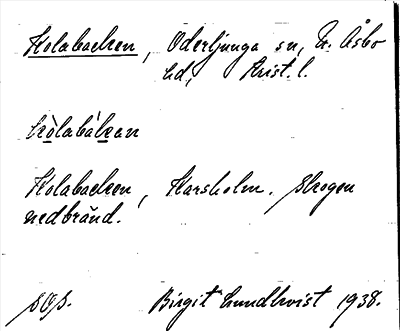 Kolabacken, Oderljunga sn, N. Åsbo
hd, Krist. l.
kòlabákan
Kolabacken, Karsholm. Skogen
nedbränd.
Birgit Lundkvist 1938.